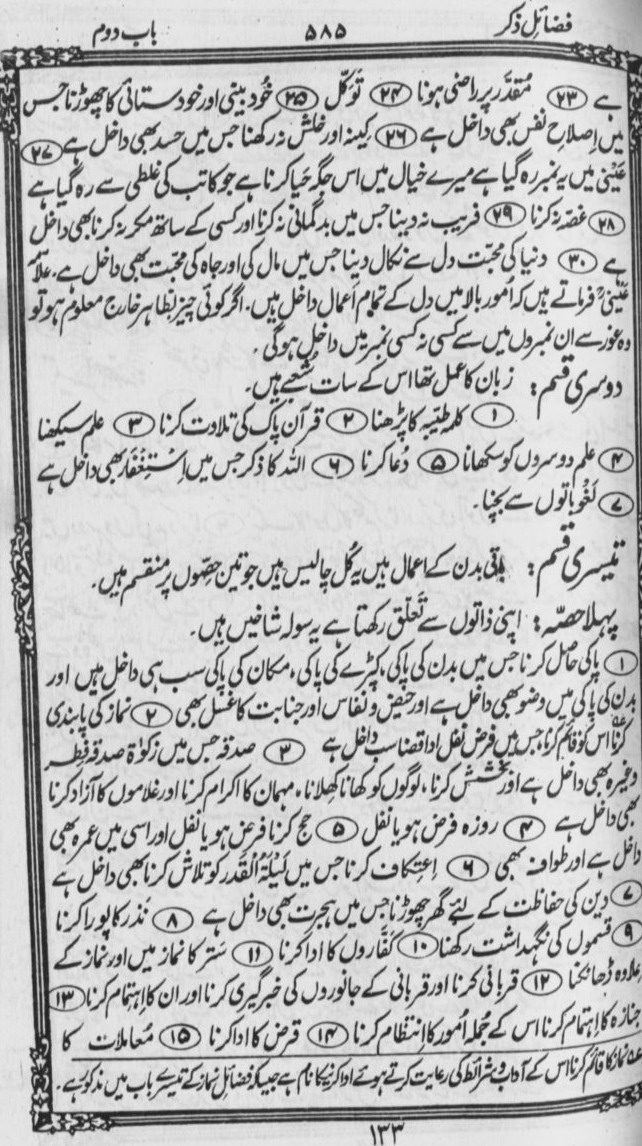 فضائل ذکر ۵۸۵ باب دوم
ہے ۲۳ مُقدَّر پر راضی ہونا ۲۴ توَکّل ۲۵ خُود بینی اور خود ستائی کا چھوڑنا جس
میں اِصلاحِ نفس بھی داخل ہے ۲۶ کِینہ اور خلش نہ رکھنا جس میں حسد بھی داخل ہے ۲۷
عَینی میں یہ نمبر رہ گیا ہے میرے خیال میں اس جگہ حَیا کرنا ہے جو کاتب کی غلطی سے رہ گیا ہے
۲۸ غصّہ نہ کرنا ۲۹ فریب نہ دینا جس میں بدگمانی نہ کرنا اور کسی کے ساتھ مکر نہ کرنا بھی داخل
ہے ۳۰ دنیا کی محبّت دل سے نکال دینا جس میں مال کی اور جاہ کی محبت بھی داخل ہے۔ علامہ
عَینیؒ فرماتے ہیں کہ اُمور بالا میں دل کے تمام اَعمال داخل ہیں۔ اگر کوئی چیز بظاہر خارج معلوم ہو تو
وہ غور سے ان نمبروں میں سے کسی نہ کسی نمبر میں داخل ہوگی۔
دوسری قسم: زبان کا عمل تھا اس کے سات شُعبے ہیں۔
۱ کلمہ طیّبہ کا پڑھنا ۲ قرآن پاک کی تلاوت کرنا ۳ علم سیکھنا
۴ علم دوسروں کو سکھانا ۵ دُعا کرنا ۶ اللہ کا ذکر جس میں اِستِغفَار بھی داخل ہے
۷ لَغْو باتوں سے بچنا۔
تیسری قسم: باقی بدن کے اعمال ہیں یہ کُل چالیس ہیں جو تین حِصّوں پر منقسم ہیں۔
پہلا حصّہ: اپنی ذاتوں سے تَعلّق رکھتا ہے یہ سولہ شاخیں ہیں۔
۱ پاکی حاصل کرنا جس میں بدن کی پاکی، کپڑے کی پاکی، مکان کی پاکی سب ہی داخل ہیں اور
بدن کی پاکی میں وضو بھی داخل ہے اور حیض و نِفاس اور جنابت کا غسل بھی ۲ نماز کی پابندی
کرنا اس کو قائم کرنا، جس میں فرض نفل ادا قضا سب داخل ہے ۳ صدقہ جس میں زکوٰۃ صدقہ فطر
وغیرہ بھی داخل ہے اور بخشش کرنا، لوگوں کو کھانا کھلانا، مہمان کا اکرام کرنا اور غلاموں کا آزاد کرنا
بھی داخل ہے ۴ روزہ فرض ہو یا نفل ۵ حج کرنا فرض ہو یا نفل اور اسی میں عمرہ بھی
داخل ہے اور طواف بھی ۶ اِعتِکاف کرنا جس میں لَیْلَۃُ الْقَدْر کو تلاش کرنا بھی داخل ہے
۷ دین کی حفاظت کے لئے گھر چھوڑنا جس میں ہجرت بھی داخل ہے ۸ نذر کا پورا کرنا
۹ قسموں کی نگہداشت رکھنا ۱۰ کفَّاروں کا ادا کرنا ۱۱ ستر کا نماز میں اور نماز کے
عِلاوہ ڈھانکنا ۱۲ قربانی کرنا اور قربانی کے جانوروں کی خبرگیری کرنا اور ان کا اِہتمام کرنا ۱۳
جنازہ کا اِہتمام کرنا اس کے جُملہ اُمور کا اِنتظام کرنا ۱۴ قرض کا ادا کرنا ۱۵ مُعاملات کا
عہ نماز کا قائم کرنا اس کے آداب و شرائط کی رعایت کرتے ہوئے ادا کرنے کا نام ہے جیسا کہ فضائل نماز کے تیسرے باب میں مذکور ہے۔
۱۳۳